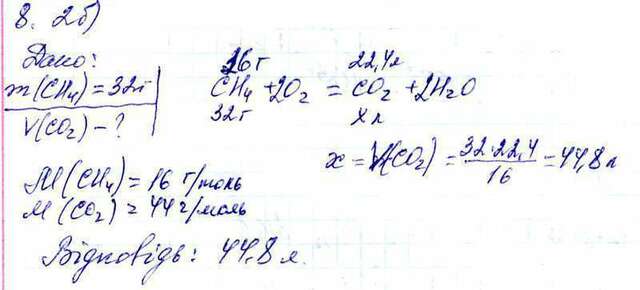 8. 2б)
Дано:
m(CH₄) = 32г
V(CO₂) - ?
16г 22,4л
CH₄ + 2O₂ = CO₂ + 2H₂O
32г x л
x = V(CO₂) = 32·22,4 / 16 = 44,8 л
M(CH₄) = 16 г/моль
M(CO₂) = 44 г/моль
Відповідь: 44,8 л.